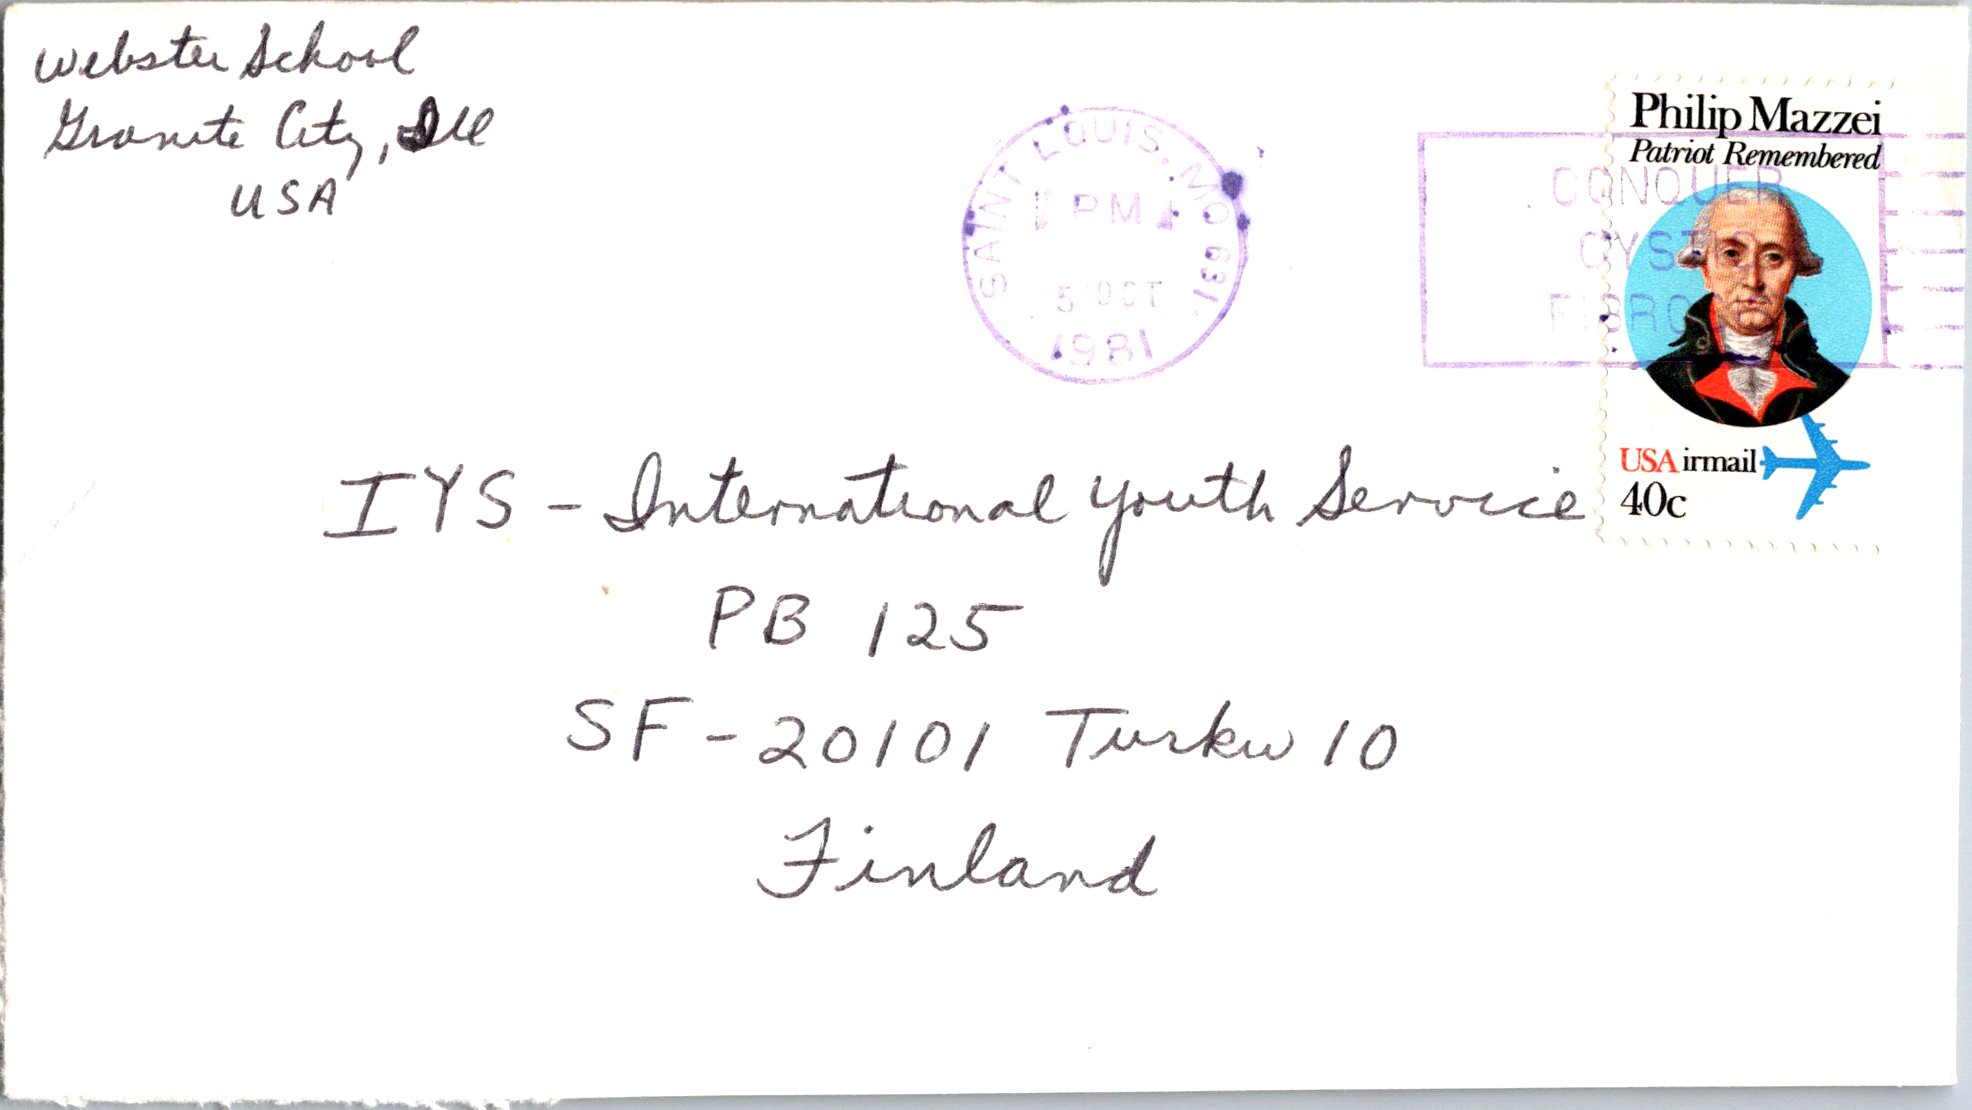 Webster School
Granite City, Ill
USA
SAINT LOUIS, MO 631
PM
5 OCT
1981
CONQUER
CYSTIC
Philip Mazzei
Patriot Remembered
USAirmail
40c
IYS - International Youth Service
PB 125
SF - 20101 Turku 10
Finland